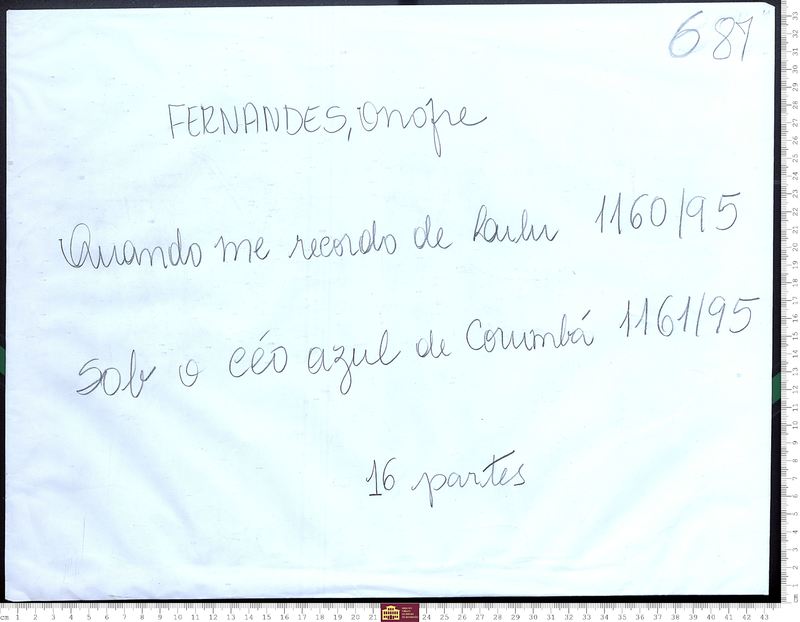 687
FERNANDES, Onofre
Quando me recordo de 1160/95
Sob o céo azul de Corumbá 1161/95
16 partes